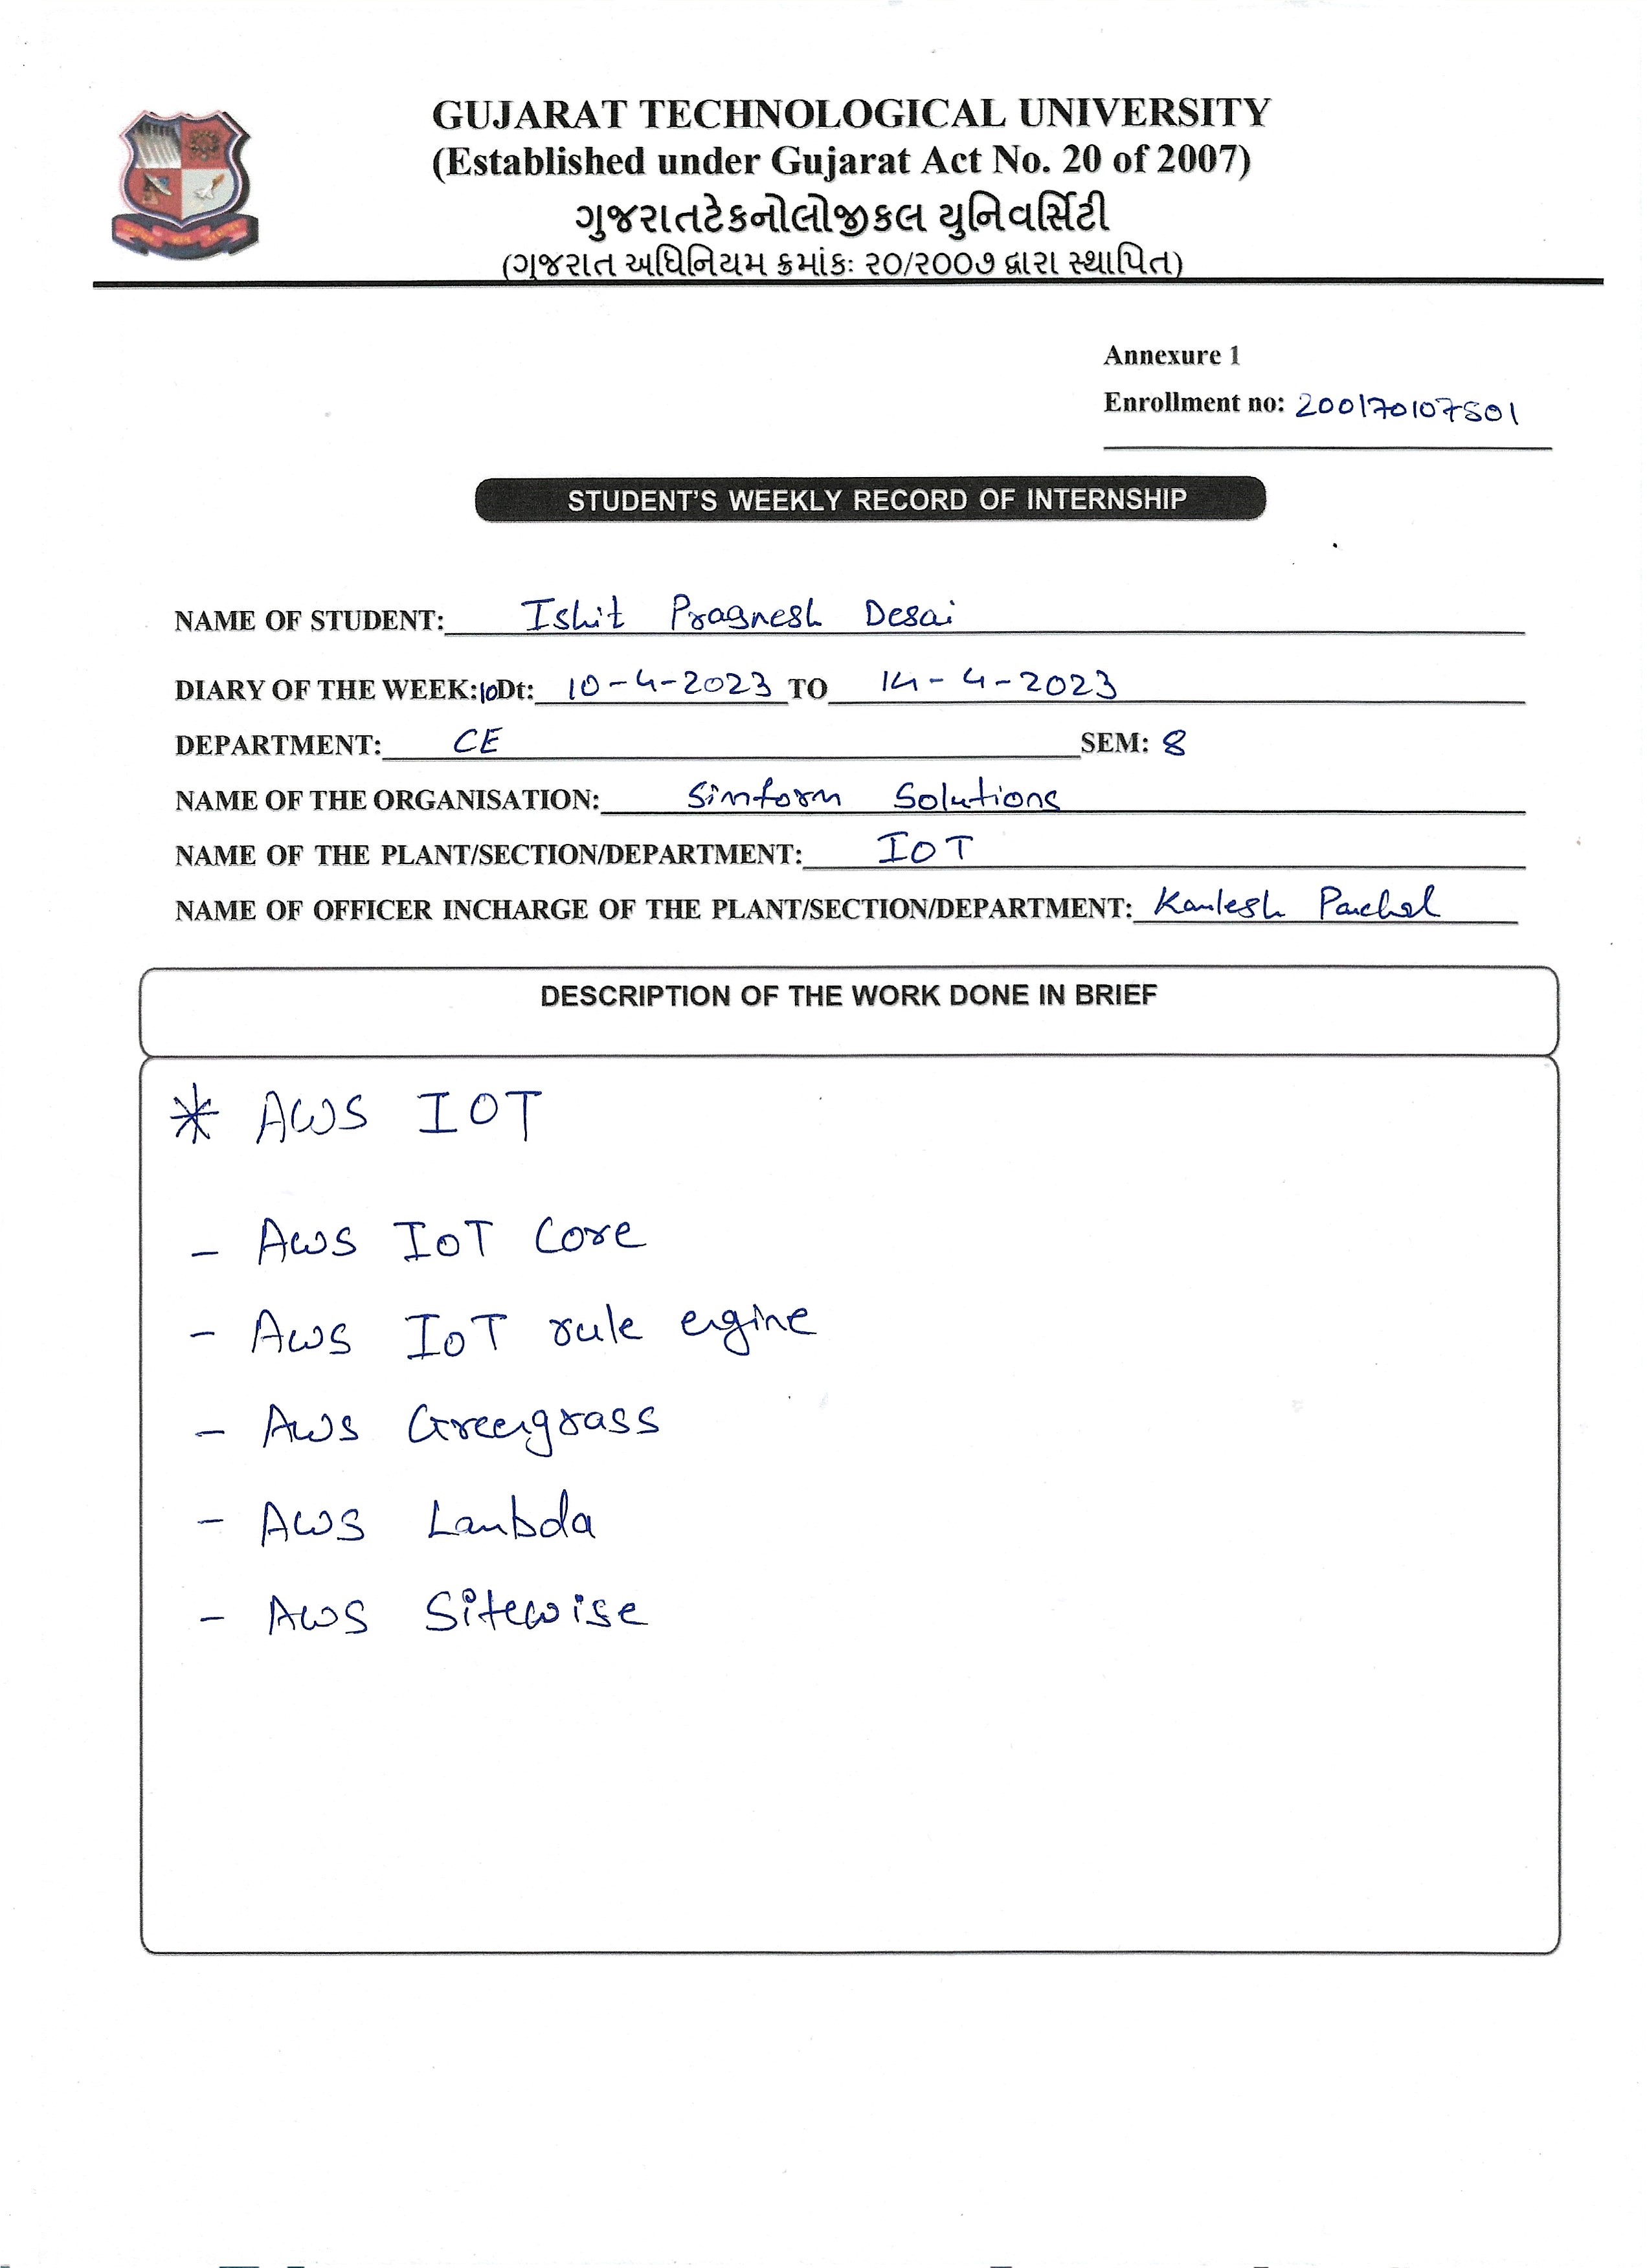 GUJARAT TECHNOLOGICAL UNIVERSITY
(Established under Gujarat Act No. 20 of 2007)
ગુજરાતટેકનોલોજીકલ યુનિવર્સિટી
(ગુજરાત અધિનિયમ ક્રમાંકઃ ૨૦/૨૦૦૭ દ્વારા સ્થાપિત)
Annexure 1
Enrollment no: 200170107501
STUDENT'S WEEKLY RECORD OF INTERNSHIP
NAME OF STUDENT: Ishit Pragnesh Desai
DIARY OF THE WEEK:10Dt: 10-4-2023 TO 14-4-2023
DEPARTMENT: CE SEM: 8
NAME OF THE ORGANISATION: Simform Solutions
NAME OF THE PLANT/SECTION/DEPARTMENT: IOT
NAME OF OFFICER INCHARGE OF THE PLANT/SECTION/DEPARTMENT: Kamlesh
DESCRIPTION OF THE WORK DONE IN BRIEF
* AWS IOT
- AWS IOT Core
- AWS IOT rule engine
- AWS Greengrass
- AWS Lambda
- AWS Sitewise